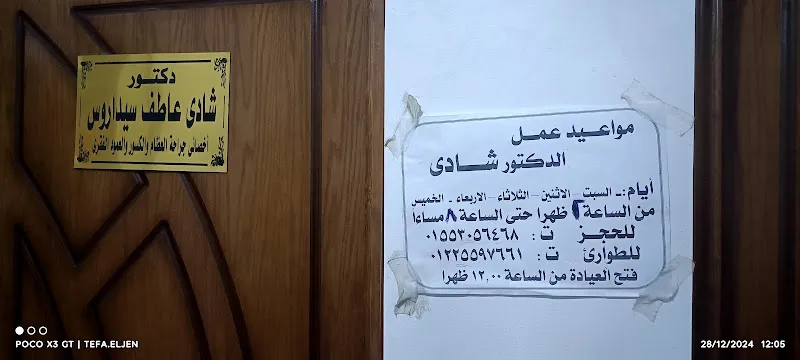 دكتور
شادى عاطف سيداروس
أخصائى جراحة العظام والكسور والعمود الفقرى
مواعيد عمل
الدكتور شادى
أيام :ـ السبت - الاثنين - الثلاثاء - الاربعاء - الخميس
من الساعة ٢ ظهرا حتى الساعة ٨ مساءا
للحجز ت : ٠١٥٥٣٠٥٦٤٦٨
للطوارئ ت : ٠١٢٢٥٥٩٧٦٦١
فتح العيادة من الساعة ١٢,٠٠ ظهرا
POCO X3 GT | TEFA.ELJEN
28/12/2024 12:05